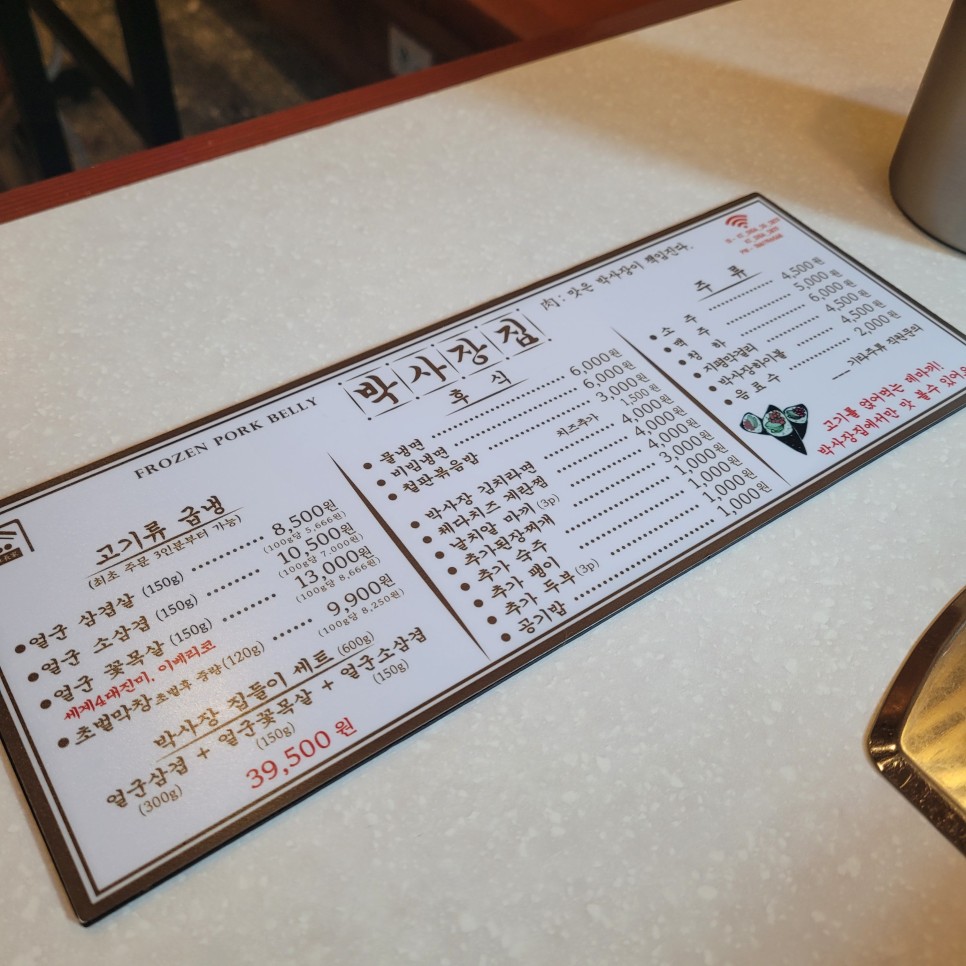 FROZEN PORK BELLY
박사장집
肉 : 맛은 박사장이 책임진다.
고기류 급냉
(최초 주문 3인분부터 가능)
얼군 삼겹살 (150g) 8,500원
(100g당 5,666원)
얼군 소삼겹 (150g) 10,500원
(100g당 7,000원)
얼군 꽃목살 (150g) 13,000원
(100g당 8,666원)
세계4대진미, 이베리코
초벌막창 초벌후 중량 (120g) 9,900원
(100g당 8,250원)
박사장 집들이 세트 (600g)
얼군삼겹 + 얼군꽃목살 + 얼군소삼겹
(300g) (150g) (150g)
39,500원
후식
물냉면 6,000원
비빔냉면 6,000원
철판볶음밥 3,000원
치즈추가 1,500원
박사장 김치라면 4,000원
체다치즈 계란찜 4,000원
날치알 마키 (3p) 4,000원
추가된장찌개 3,000원
추가 숙주 1,000원
추가 팽이 1,000원
추가 두부 (3p) 1,000원
공기밥 1,000원
주류
소주 4,500원
맥주 5,000원
청하 6,000원
지평막걸리 4,500원
박사장하이볼 4,500원
음료수 2,000원
기타주류 직원문의
고기를 얹어먹는 데마끼!
박사장집에서만 맛 볼수 있어요